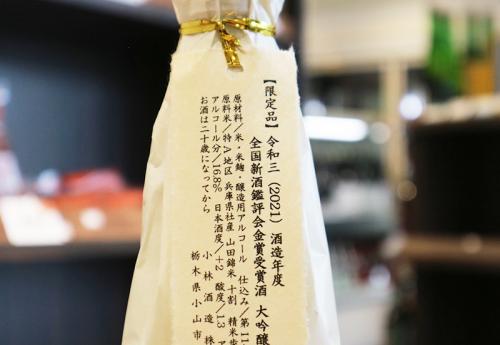 【限定品】令和三（2021）酒造年度
全国新酒鑑評会金賞受賞酒 大吟醸
原材料/米・米麹・醸造用アルコール 仕込み/第11
原料米/特A地区 兵庫県社産 山田錦米 十割 精米歩
アルコール分/16.8% 日本酒度/+2 酸度/1.3 ア
お酒は二十歳になってから
小林酒造株
栃木県小山市